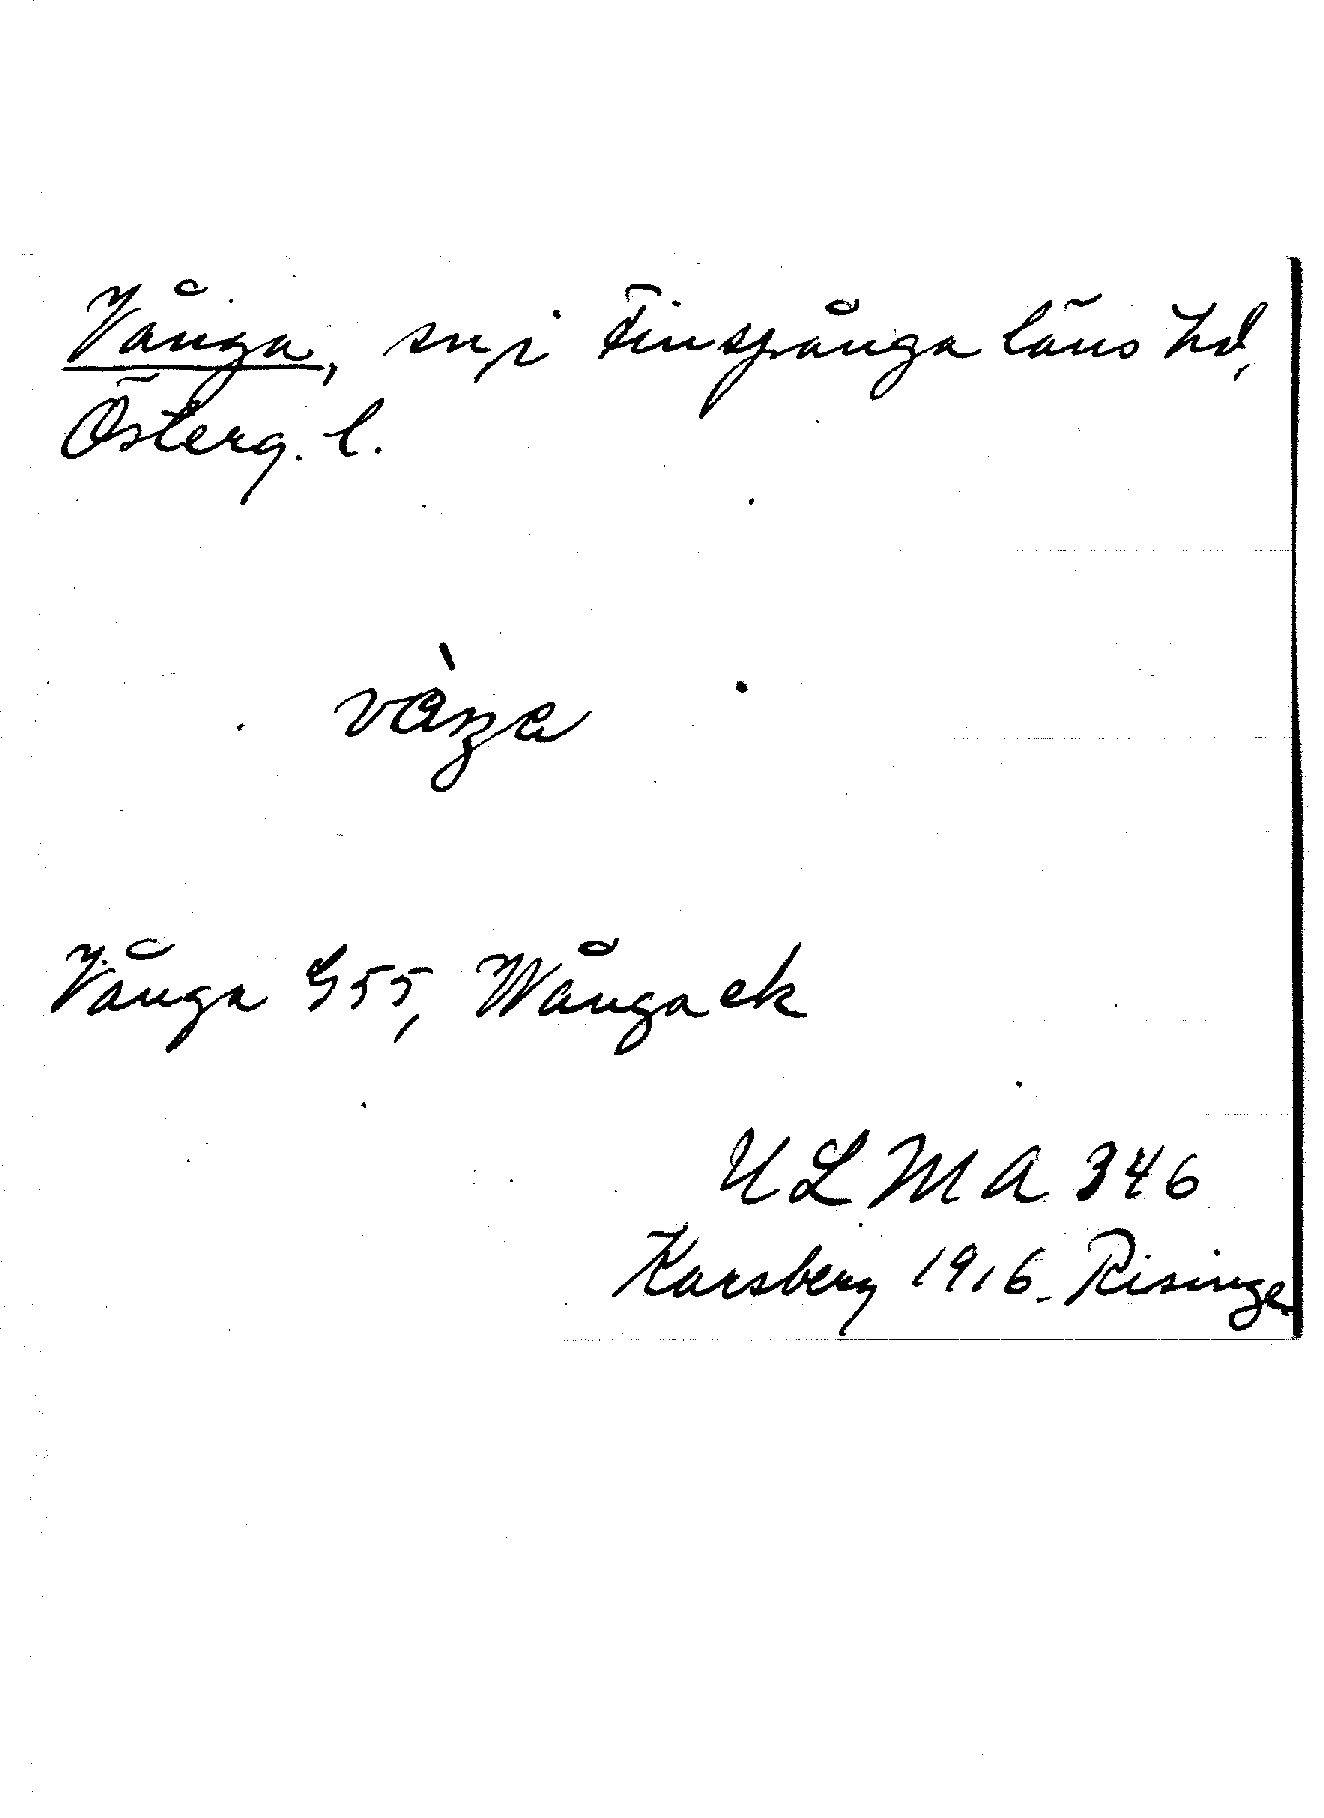 Vånga, sn i Finspånga läns hd,
Österg. l.
Vånga G55, Wånga ek
ULMA 346
Karsberg 1916. Risinge